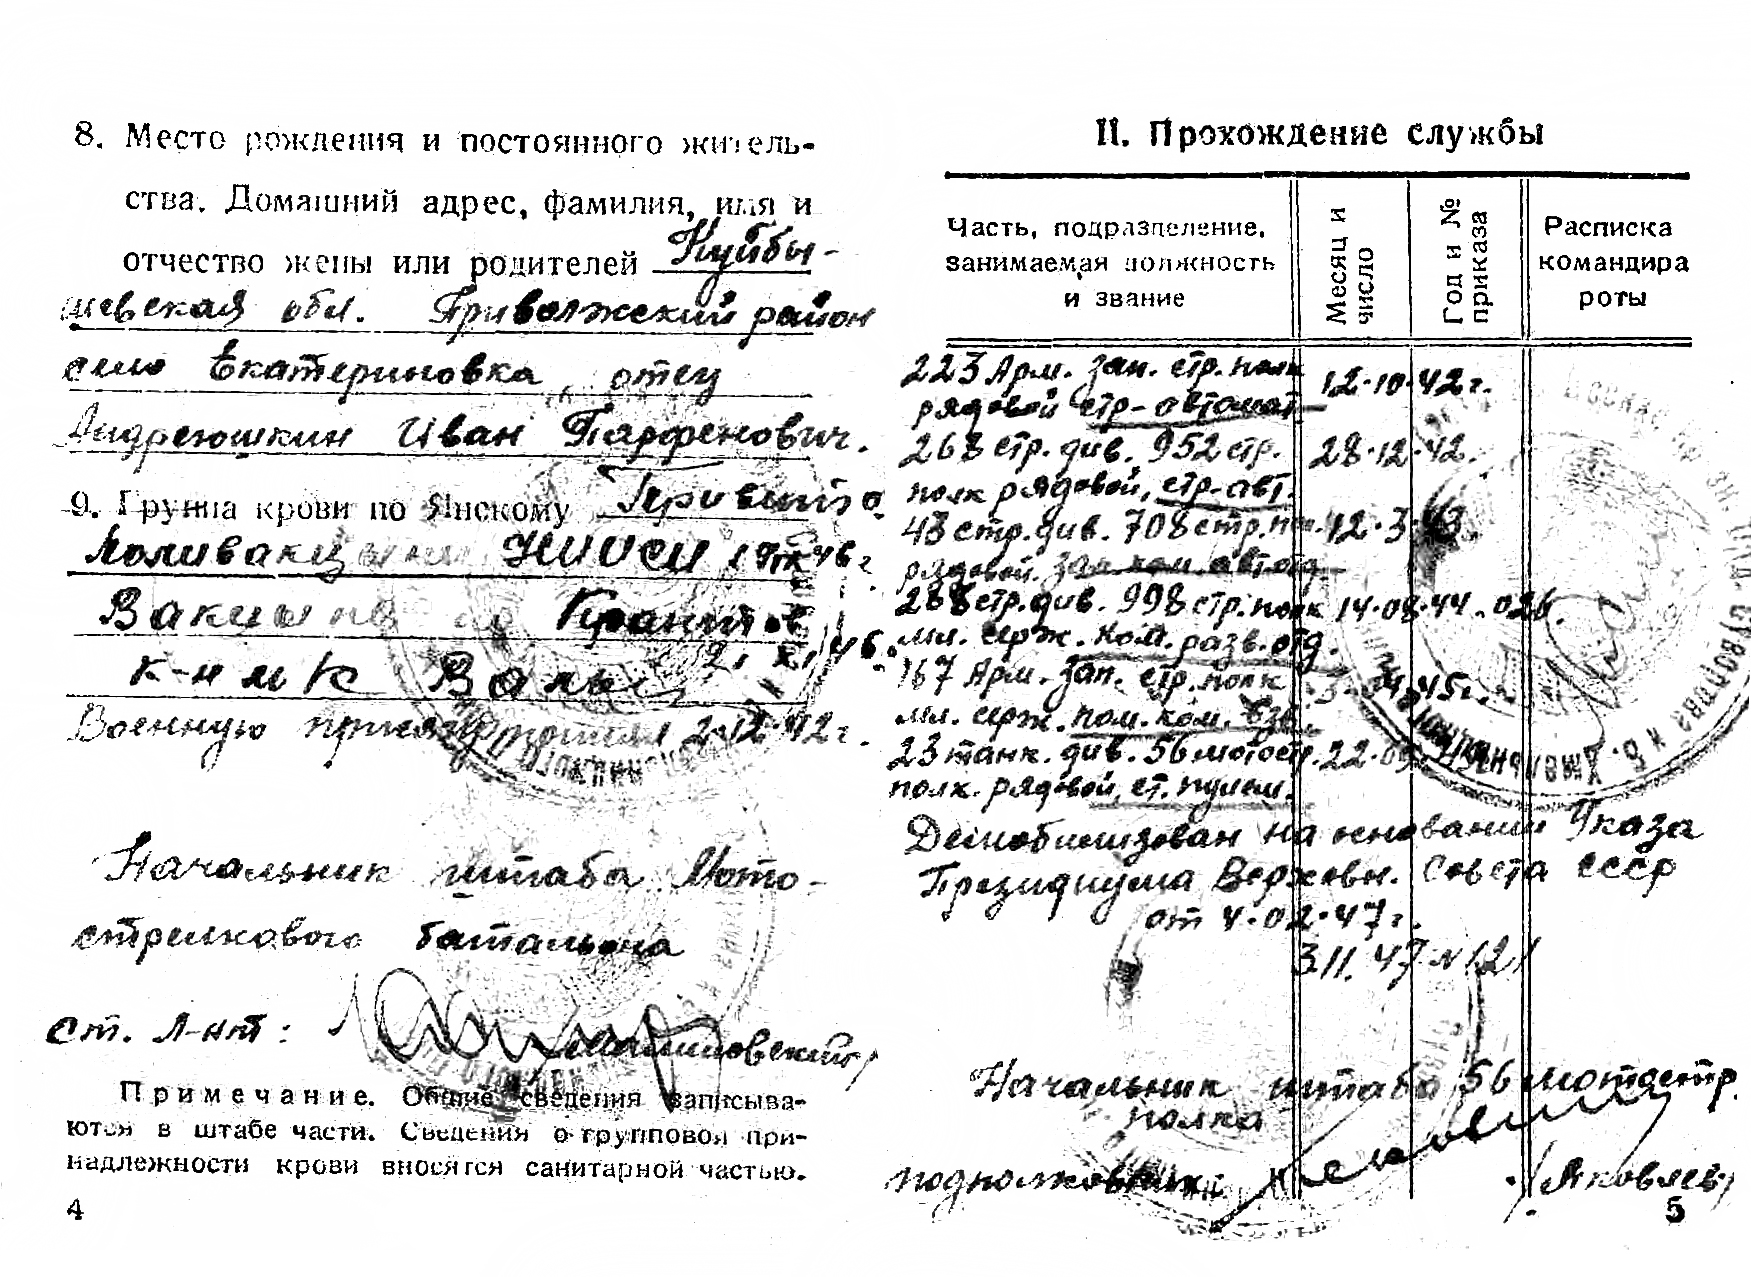 8. Место рождения и постоянного житель-
ства. Домашний адрес, фамилия, имя и
отчество жены или родителей Куйбы-
шевская обл. Приволжский район
село Екатериновка, отец
Андреюшкин Иван Парфенович.
9. Группа крови по Янскому Привито
Поливакцина НИИСИ
Вакцина
Военную присягу принял 2.12.42 г.
Начальник штаба Мото-
стрелкового батальона
ст. л-нт:
Примечание. Общие сведения записыва-
ются в штабе части. Сведения о групповой при-
надлежности крови вносятся санитарной частью.
4
II. Прохождение службы
Часть, подразделение, занимаемая должность и звание
Месяц и число
Год и № приказа
Расписка командира роты
223 Арм. зап. стр. полк 12.10.42 г.
рядовой стр-автомат
268 стр. див. 952 стр. 28.12.42.
полк рядовой, стр-авт.
43 стр. див. 708 стр. 12.3.43
рядовой. зам. ком. авт. отд.
288 стр. див. 998 стр. полк 14.08.44. 026.
мл. серж. ком. разв. отд.
167 Арм. зап. стр. полк 45 г.
мл. серж. пом. ком. взв.
23 танк. див. 56 мотостр. 22.
полк. рядовой, ст. пулем.
Демобилизован на основании Указа
Президиума Верховн. Совета СССР
от 4.02.47 г.
3.11.47 № 121
Начальник штаба 56 мотостр.
полка
подполковник /Яковлев/
5